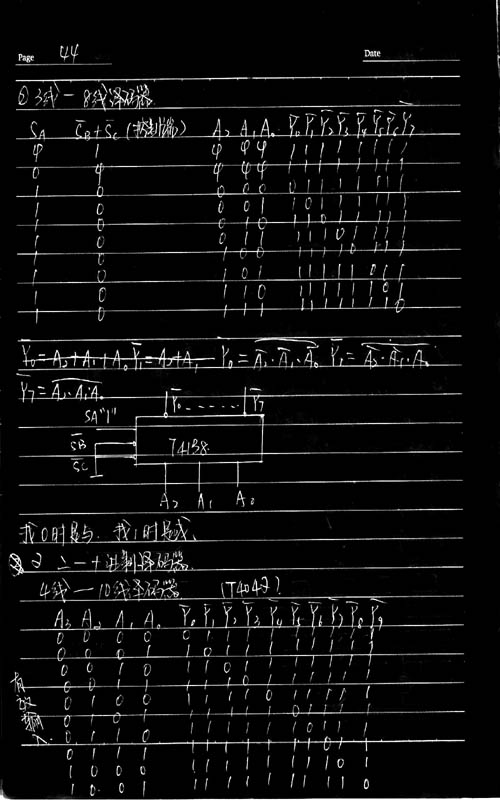 Page 44 Date
② 3线—8线译码器
SA S̅B+S̅C (控制端) A₂ A₁ A₀ Y̅₀ Y̅₁ Y̅₂ Y̅₃ Y̅₄ Y̅₅ Y̅₆ Y̅₇
φ 1 φ φ φ 1 1 1 1 1 1 1 1
0 φ φ φ φ 1 1 1 1 1 1 1 1
1 0 0 0 0 0 1 1 1 1 1 1 1
1 0 0 0 1 1 0 1 1 1 1 1 1
1 0 0 1 0 1 1 0 1 1 1 1 1
1 0 0 1 1 1 1 1 0 1 1 1 1
1 0 1 0 0 1 1 1 1 0 1 1 1
1 0 1 0 1 1 1 1 1 1 0 1 1
1 0 1 1 0 1 1 1 1 1 1 0 1
1 0 1 1 1 1 1 1 1 1 1 1 0
Y̅₀=A₂+A₁+A₀ Y̅₁=A₂+A₁
Y̅₇=
Y̅₀ ...... Y̅₇
SA"1"
S̅B
74138
S̅C
A₂ A₁ A₀
找0时是与. 找1时是或.
2 二—十进制译码器
4线—10线译码器 (T4042)
A₃ A₂ A₁ A₀ Y̅₀ Y̅₁ Y̅₂ Y̅₃ Y̅₄ Y̅₅ Y̅₆ Y̅₇ Y̅₈ Y̅₉
0 0 0 0 0 1 1 1 1 1 1 1 1 1
0 0 0 1 1 0 1 1 1 1 1 1 1 1
0 0 1 0 1 1 0 1 1 1 1 1 1 1
0 0 1 1 1 1 1 0 1 1 1 1 1 1
0 1 0 0 1 1 1 1 0 1 1 1 1 1
0 1 0 1 1 1 1 1 1 0 1 1 1 1
0 1 1 0 1 1 1 1 1 1 0 1 1 1
0 1 1 1 1 1 1 1 1 1 1 0 1 1
1 0 0 0 1 1 1 1 1 1 1 1 0 1
1 0 0 1 1 1 1 1 1 1 1 1 1 0
有效输入